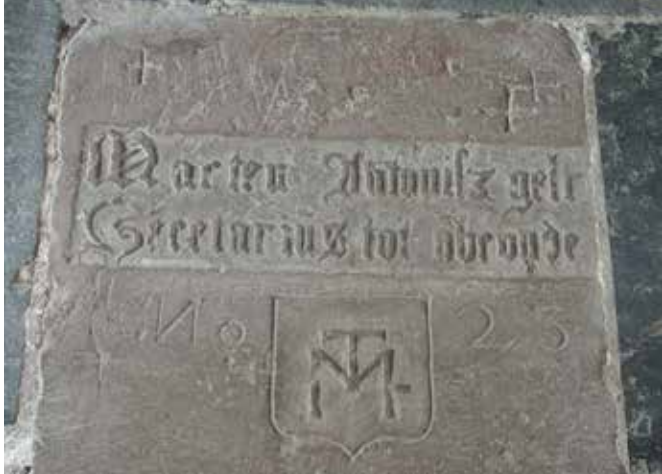 Marten Antonisz
Secretarius tot abcoude
No 23